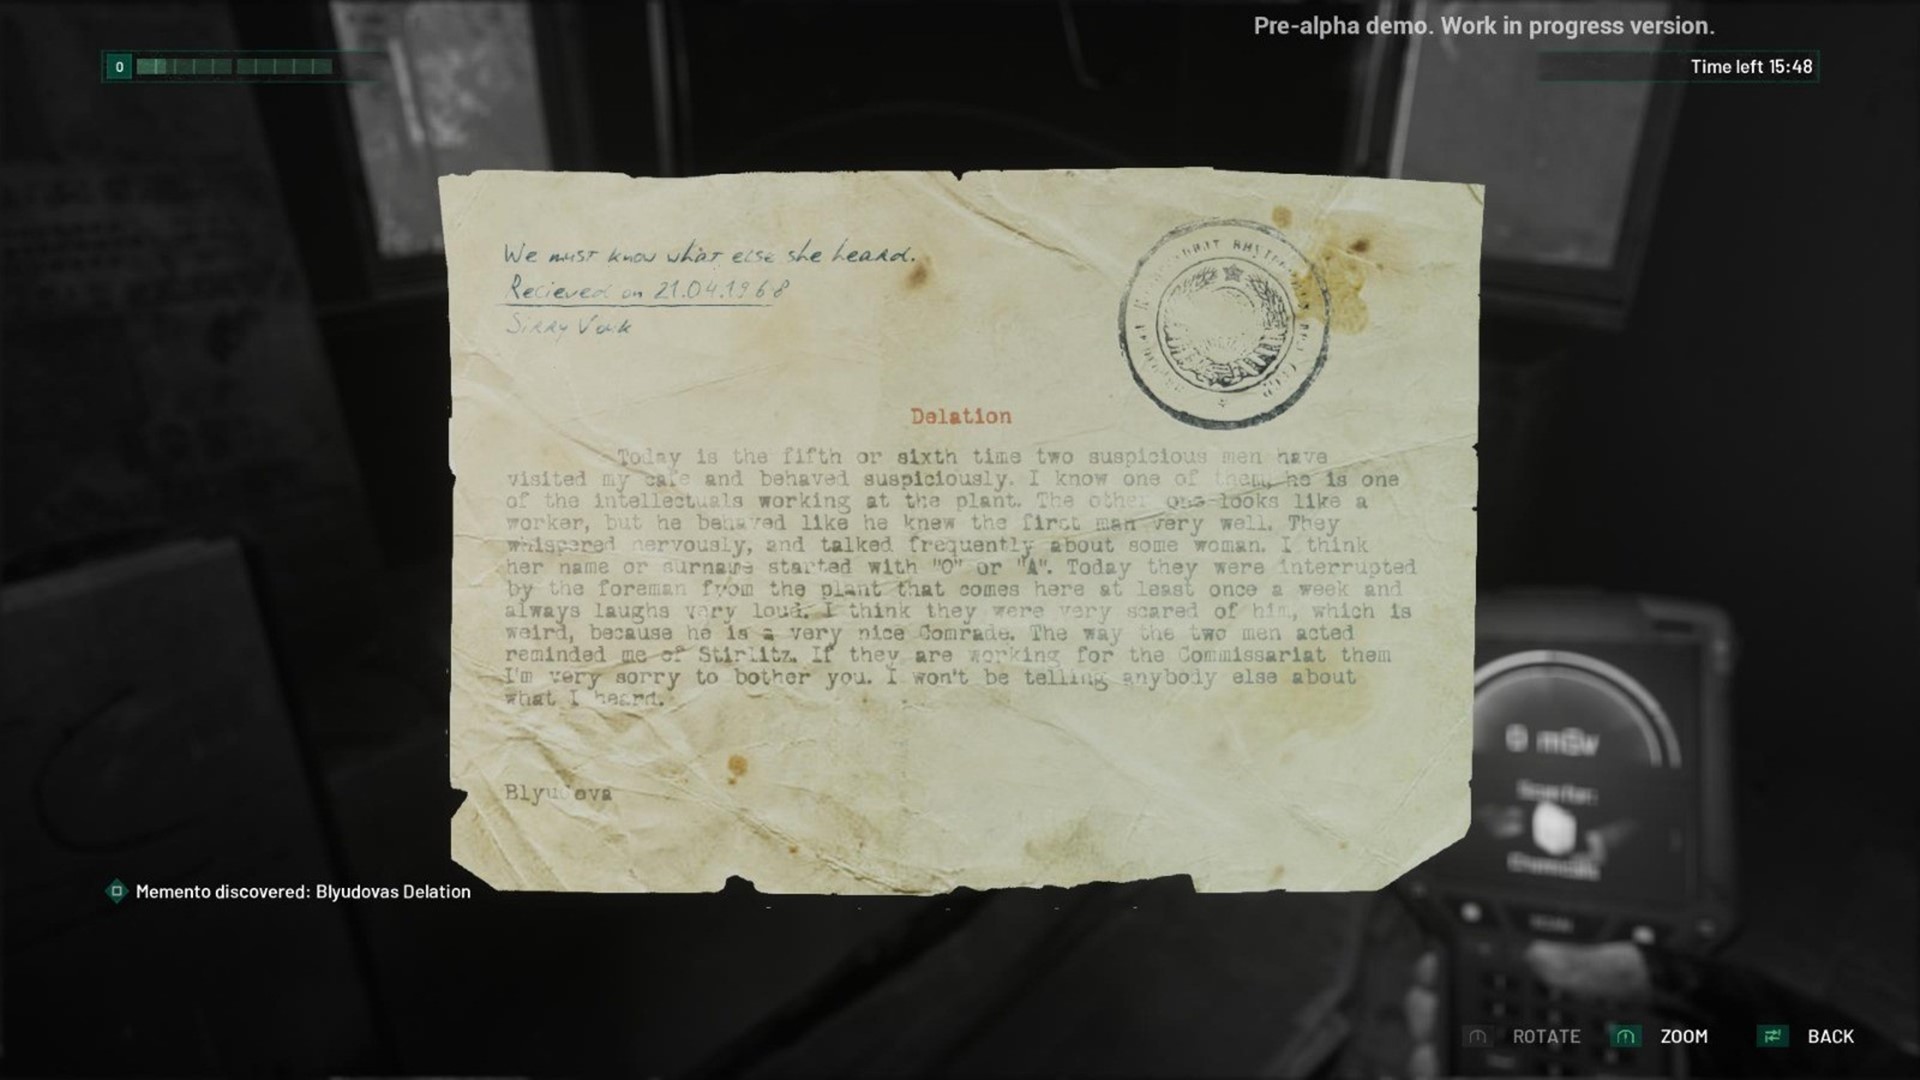 Pre-alpha demo. Work in progress version.
0
Time left 15:48
We must know what else she heard.
Recieved on 21.04.1968
Delation
Today is the fifth or sixth time two suspicious men have
visited my cafe and behaved suspiciously. I know one of them, he is one
of the intellectuals working at the plant. The other one looks like a
worker, but he behaved like he knew the first man very well. They
whispered nervously, and talked frequently about some woman. I think
her name or surname started with "O" or "A". Today they were interrupted
by the foreman from the plant that comes here at least once a week and
always laughs very loud. I think they were very scared of him, which is
weird, because he is a very nice Comrade. The way the two men acted
reminded me of Stirlitz. If they are working for the Commissariat them
I'm very sorry to bother you. I won't be telling anybody else about
what I heard.
Blyudova
0 mSv
Memento discovered: Blyudovas Delation
ROTATE
ZOOM
BACK